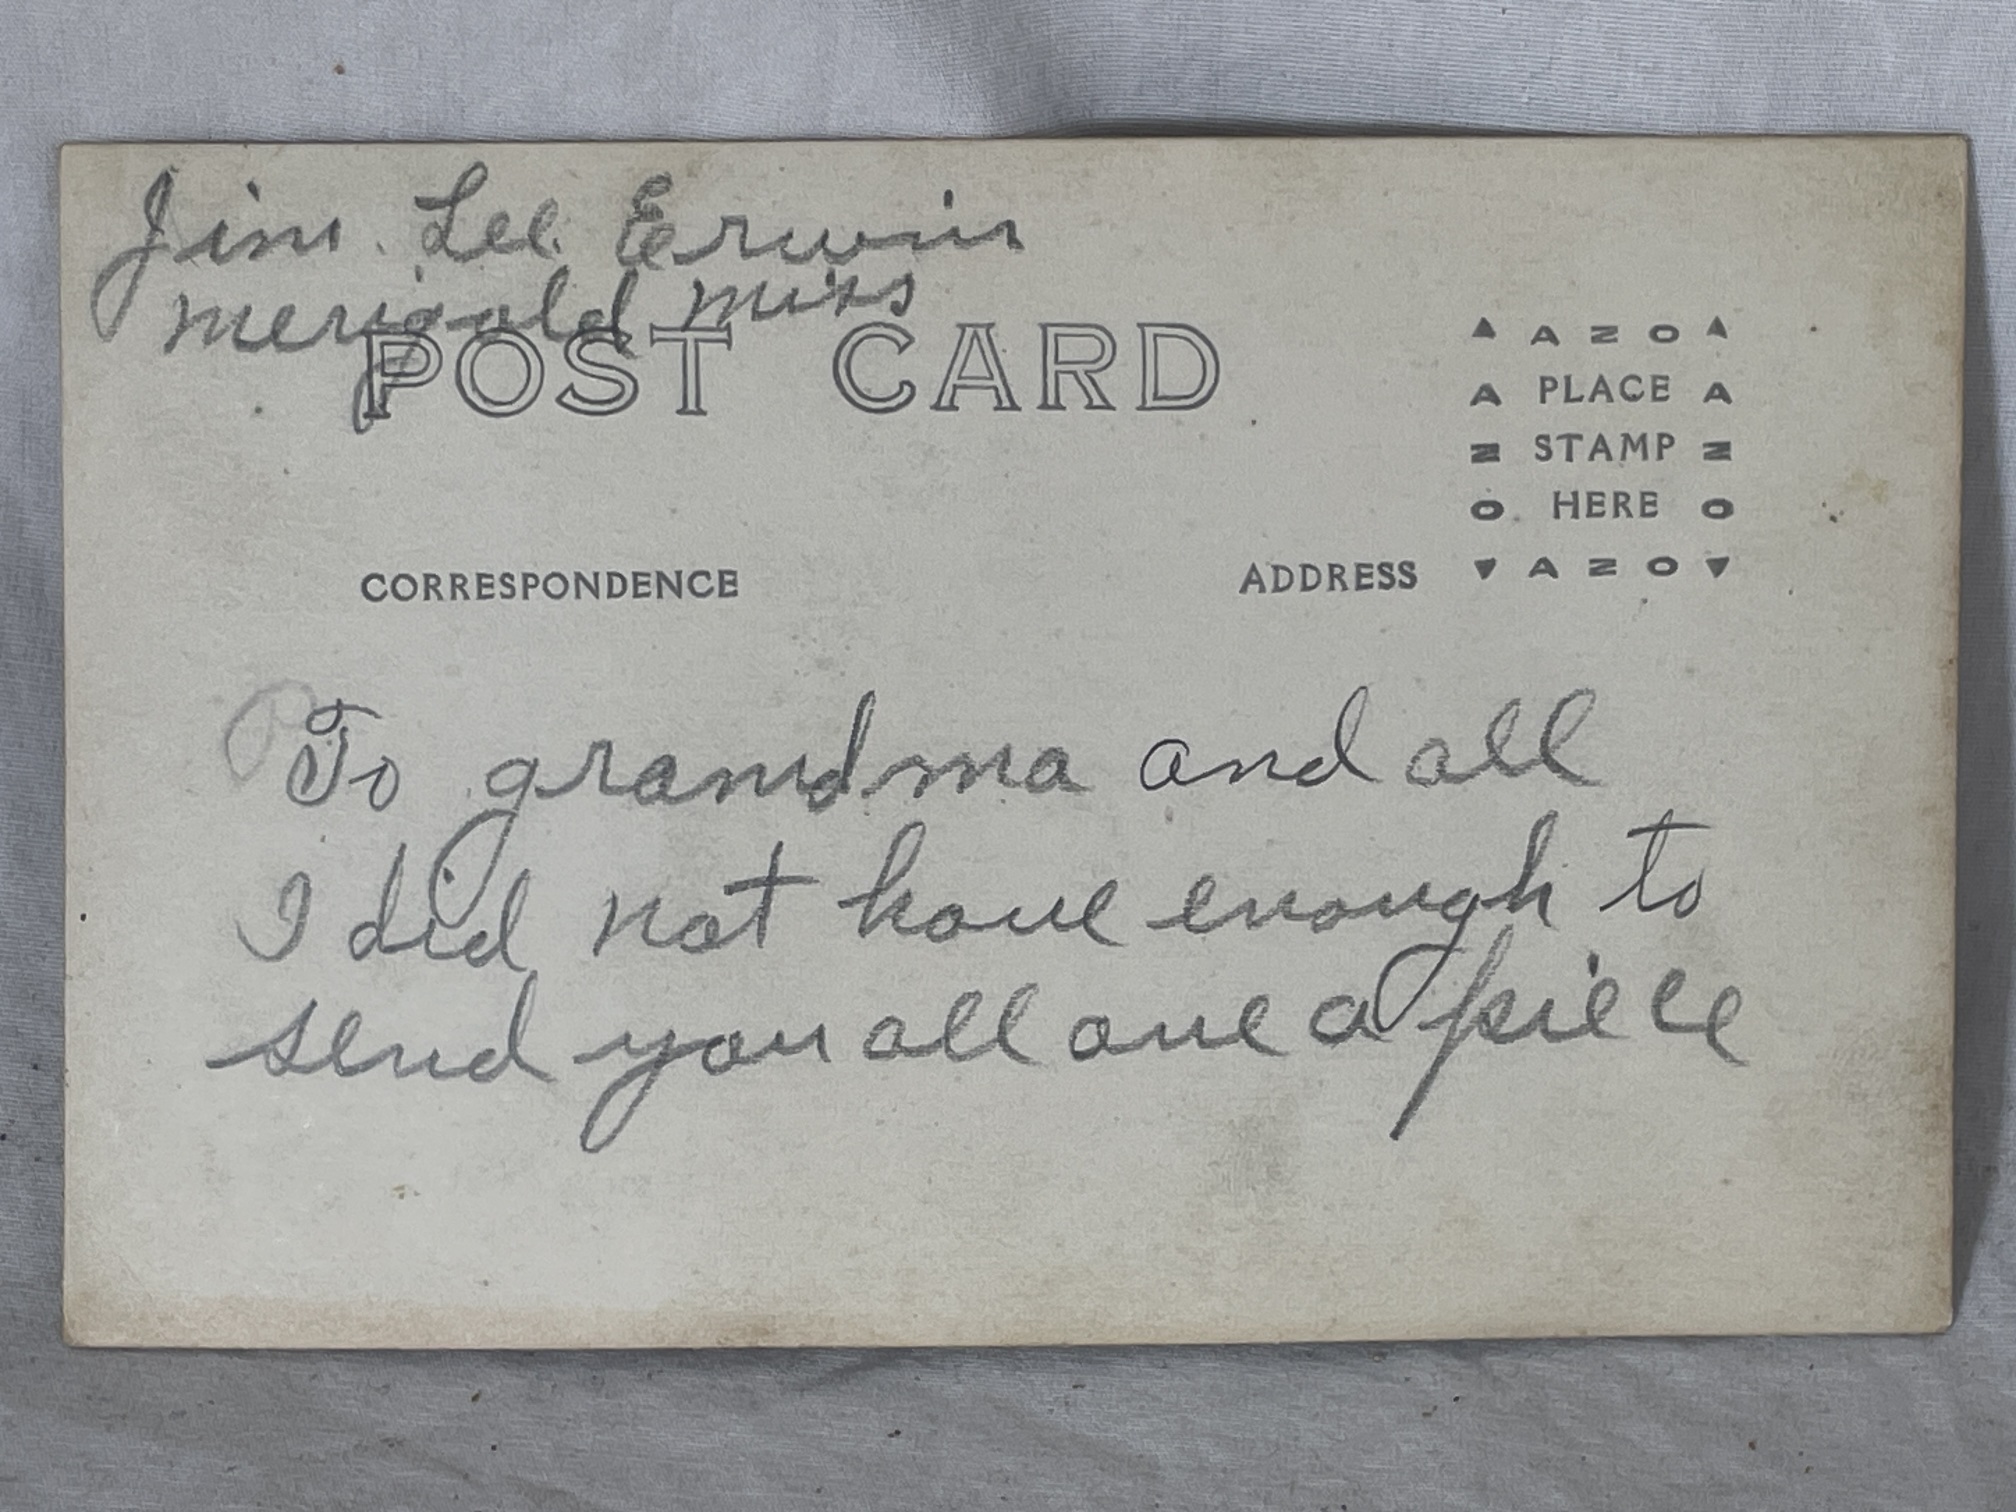 Jim Lee Erwin
merigold miss
POST CARD
AZO
A PLACE A
N STAMP N
O HERE O
AZO
CORRESPONDENCE
ADDRESS
To grandma and all
I did not have enough to
send you all one a piece